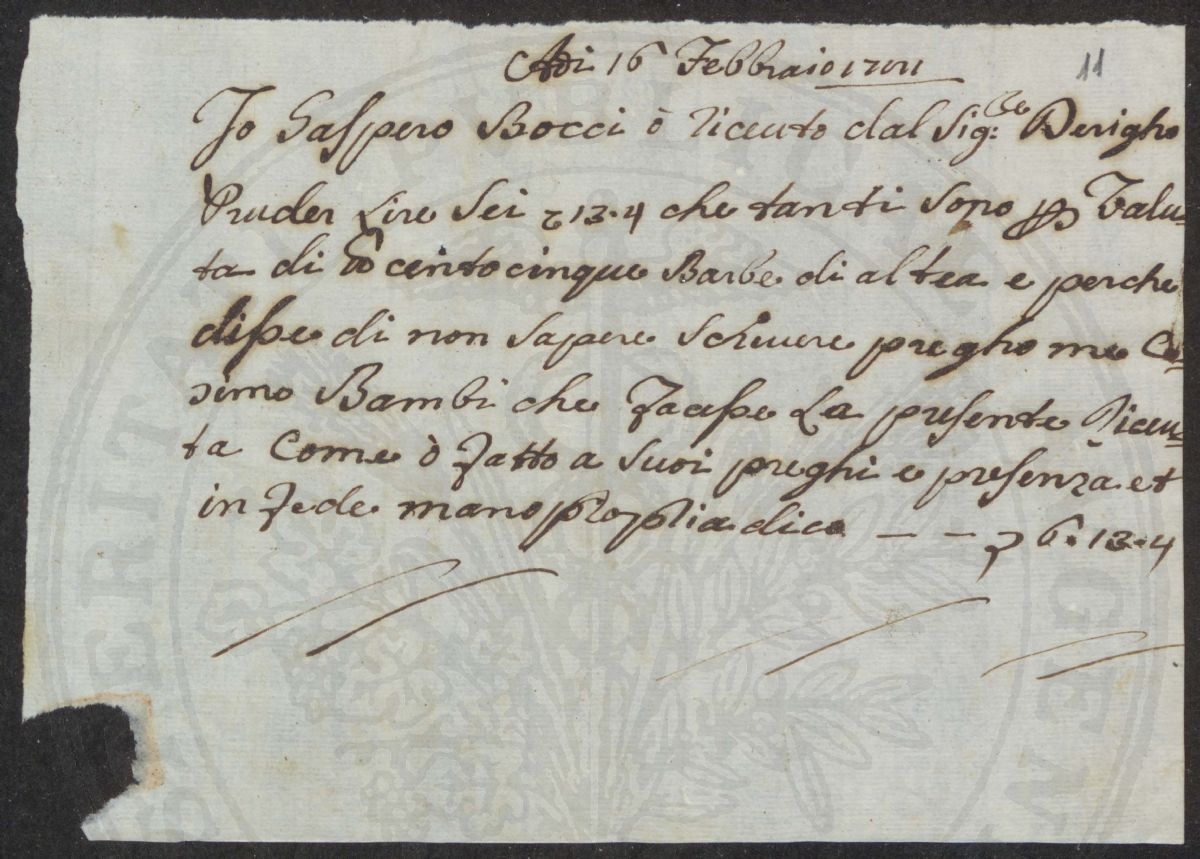 Adi 16 Febbraio 1701
11
Jo Gaspero Bocci ò riceuto dal Sig:re Derigho
Pruder Lire Sei 13.4 che tanti sono p Valu=
ta di centocinque Barbe di altea e perche
disse di non sapere Scriuere pregho me Co=
simo Bambi che facesse La presente Riceu=
ta Come ò fatto a suoi preghi e presenza et
in fede mano propria dico — — 6.13.4